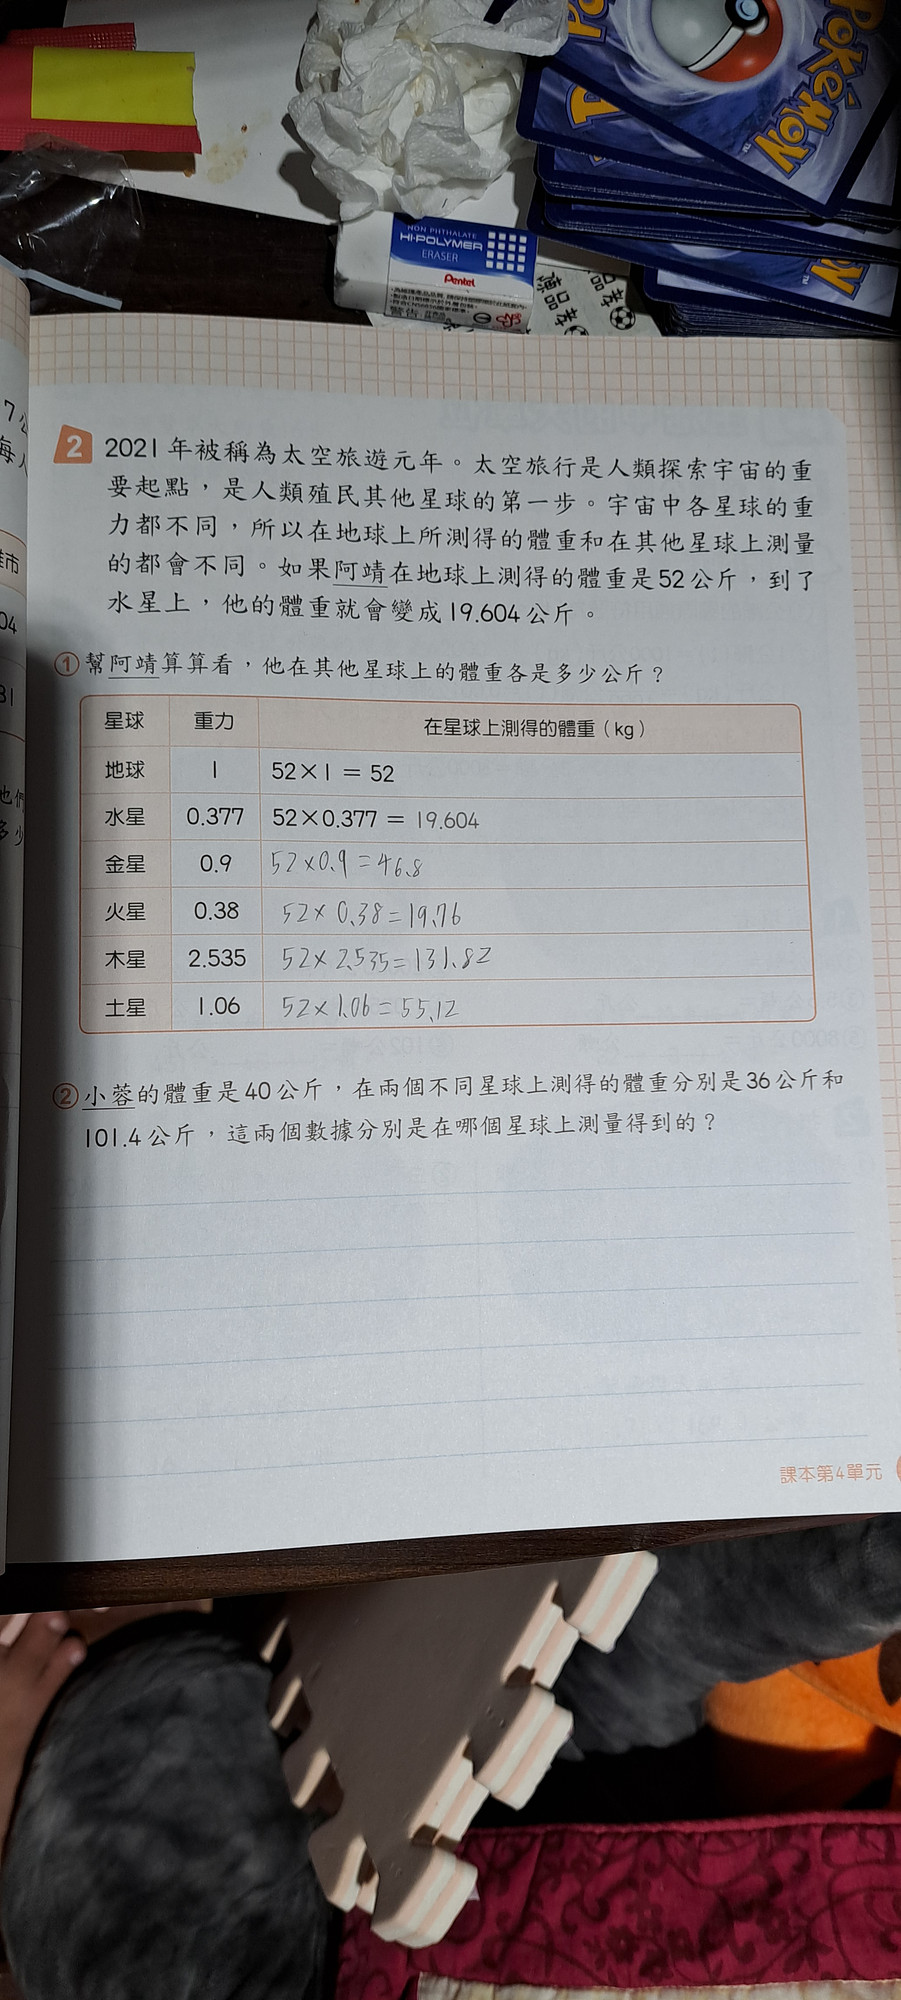 POKéMON
NON PHTHALATE
HI-POLYMER
ERASER
Pentel
警告
7公
每人
雄市
04
31
他們
多少
2 2021年被稱為太空旅遊元年。太空旅行是人類探索宇宙的重
要起點，是人類殖民其他星球的第一步。宇宙中各星球的重
力都不同，所以在地球上所測得的體重和在其他星球上測量
的都會不同。如果阿靖在地球上測得的體重是52公斤，到了
水星上，他的體重就會變成19.604公斤。
①幫阿靖算算看，他在其他星球上的體重各是多少公斤？
星球 重力 在星球上測得的體重（kg）
地球 1 52×1＝52
水星 0.377 52×0.377＝19.604
金星 0.9 52×0.9=46.8
火星 0.38 52×0.38=19.76
木星 2.535 52×2.535=131.82
土星 1.06 52×1.06=55.12
②小蓉的體重是40公斤，在兩個不同星球上測得的體重分別是36公斤和
101.4公斤，這兩個數據分別是在哪個星球上測量得到的？
課本第4單元